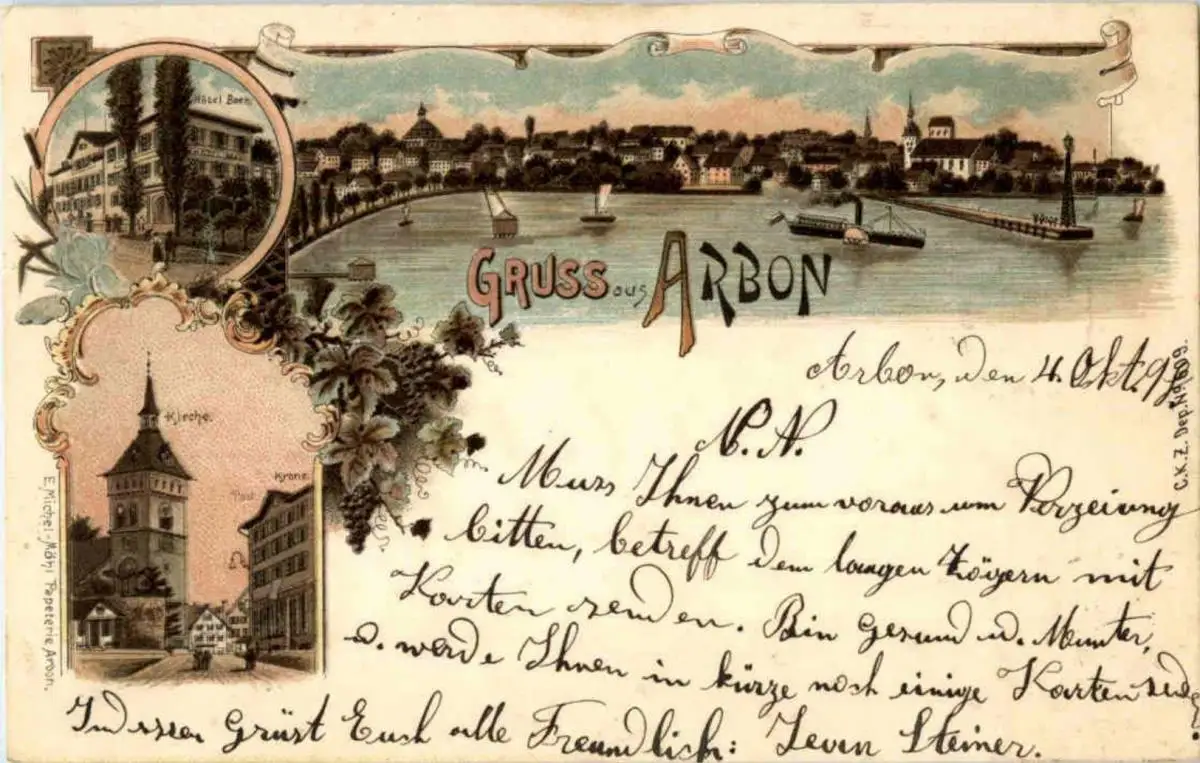 Hôtel Baer
GRUSS aus ARBON
Kirche.
Krone
Post
E. Michel-Mähl Papeterie, Arbon.
C.K.Z. Dep. No 699.
Arbon, den 4. Okt. 9
N. N.
Muss Ihnen zum voraus um Verzeiung
bitten, betreff dem langen Zögern mit
Karten senden. Bin Gesund u. Munter,
u. werde Ihnen in kürze noch einige Karten
Indessen Grüst Euch alle Freundlich: Steiner.